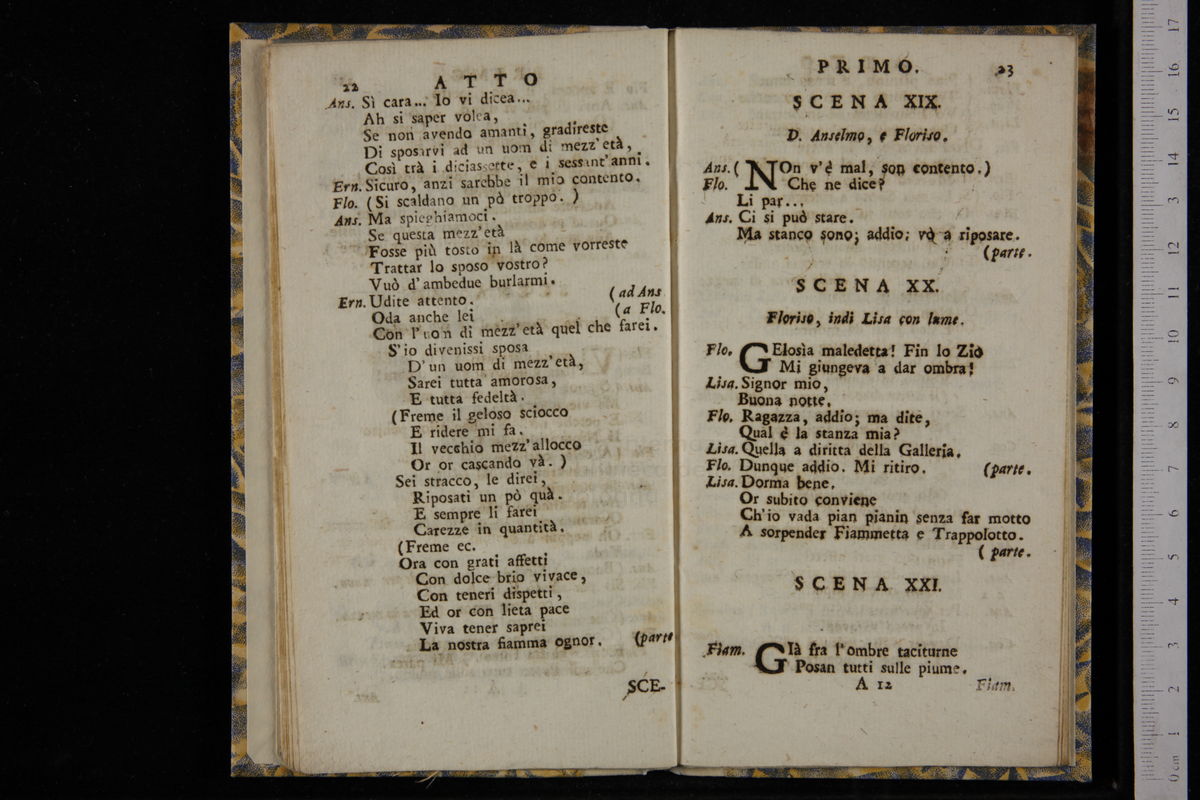 22 ATTO
Ans. Sì cara... Io vi dicea...
Ah si saper volea,
Se non avendo amanti, gradireste
Di sposarvi ad un uom di mezz'età,
Così trà i diciassette, e i sessant'anni.
Ern. Sicuro, anzi sarebbe il mio contento.
Flo. (Si scaldano un pò troppo. )
Ans. Ma spieghiamoci.
Se questa mezz'età
Fosse più tosto in là come vorreste
Trattar lo sposo vostro?
Vuò d'ambedue burlarmi.
Ern. Udite attento. (ad Ans
Oda anche lei (a Flo.
Con l'uon di mezz'età quel che farei.
S'io divenissi sposa
D'un uom di mezz'età,
Sarei tutta amorosa,
E tutta fedeltà.
(Freme il geloso sciocco
E ridere mi fa.
Il vecchio mezz'allocco
Or or cascando và. )
Sei stracco, le direi,
Riposati un pò quà.
E sempre li farei
Carezze in quantità.
(Freme ec.
Ora con grati affetti
Con dolce brio vivace,
Con teneri dispetti,
Ed or con lieta pace
Viva tener saprei
La nostra fiamma ognor. (parte
SCE-
PRIMO. 23
SCENA XIX.
D. Anselmo, e Floriso.
Ans. ( NOn v'è mal, son contento.)
Flo. Che ne dice?
Li par...
Ans. Ci si può stare.
Ma stanco sono; addio; vò a riposare.
(parte.
SCENA XX.
Floriso, indi Lisa con lume.
Flo. GElosìa maledetta! Fin lo Ziò
Mi giungeva a dar ombra!
Lisa. Signor mio,
Buona notte.
Flo. Ragazza, addio; ma dite,
Qual è la stanza mia?
Lisa. Quella a diritta della Galleria.
Flo. Dunque addio. Mi ritiro. (parte.
Lisa. Dorma bene.
Or subito conviene
Ch'io vada pian pianin senza far motto
A sorpender Fiammetta e Trappolotto.
( parte.
SCENA XXI.
Fiam. GIà fra l'ombre taciturne
Posan tutti sulle piume.
A 12 Fiam.
17
16
15
14
13
12
11
10
9
8
7
6
5
4
3
2
1
0 cm